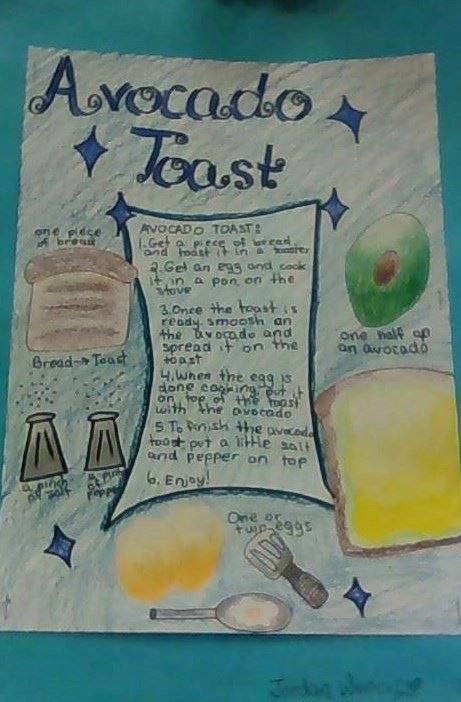 Avocado
Toast
one piece
of bread
AVOCADO TOAST:
1. Get a piece of bread
and toast it in a toaster
2. Get an egg and cook
it in a pan on the
stove
3. Once the toast is
ready smoosh an
the avocado and
spread it on the
toast
4. When the egg is
done cooking put it
on top of the toast
with the avocado
5. To finish the avocado
toast put a little salt
and pepper on top
6. Enjoy!
one half of
an avocado
Bread → Toast
a pinch
of salt
a pinch
of pepper
One or
two eggs
Jordan